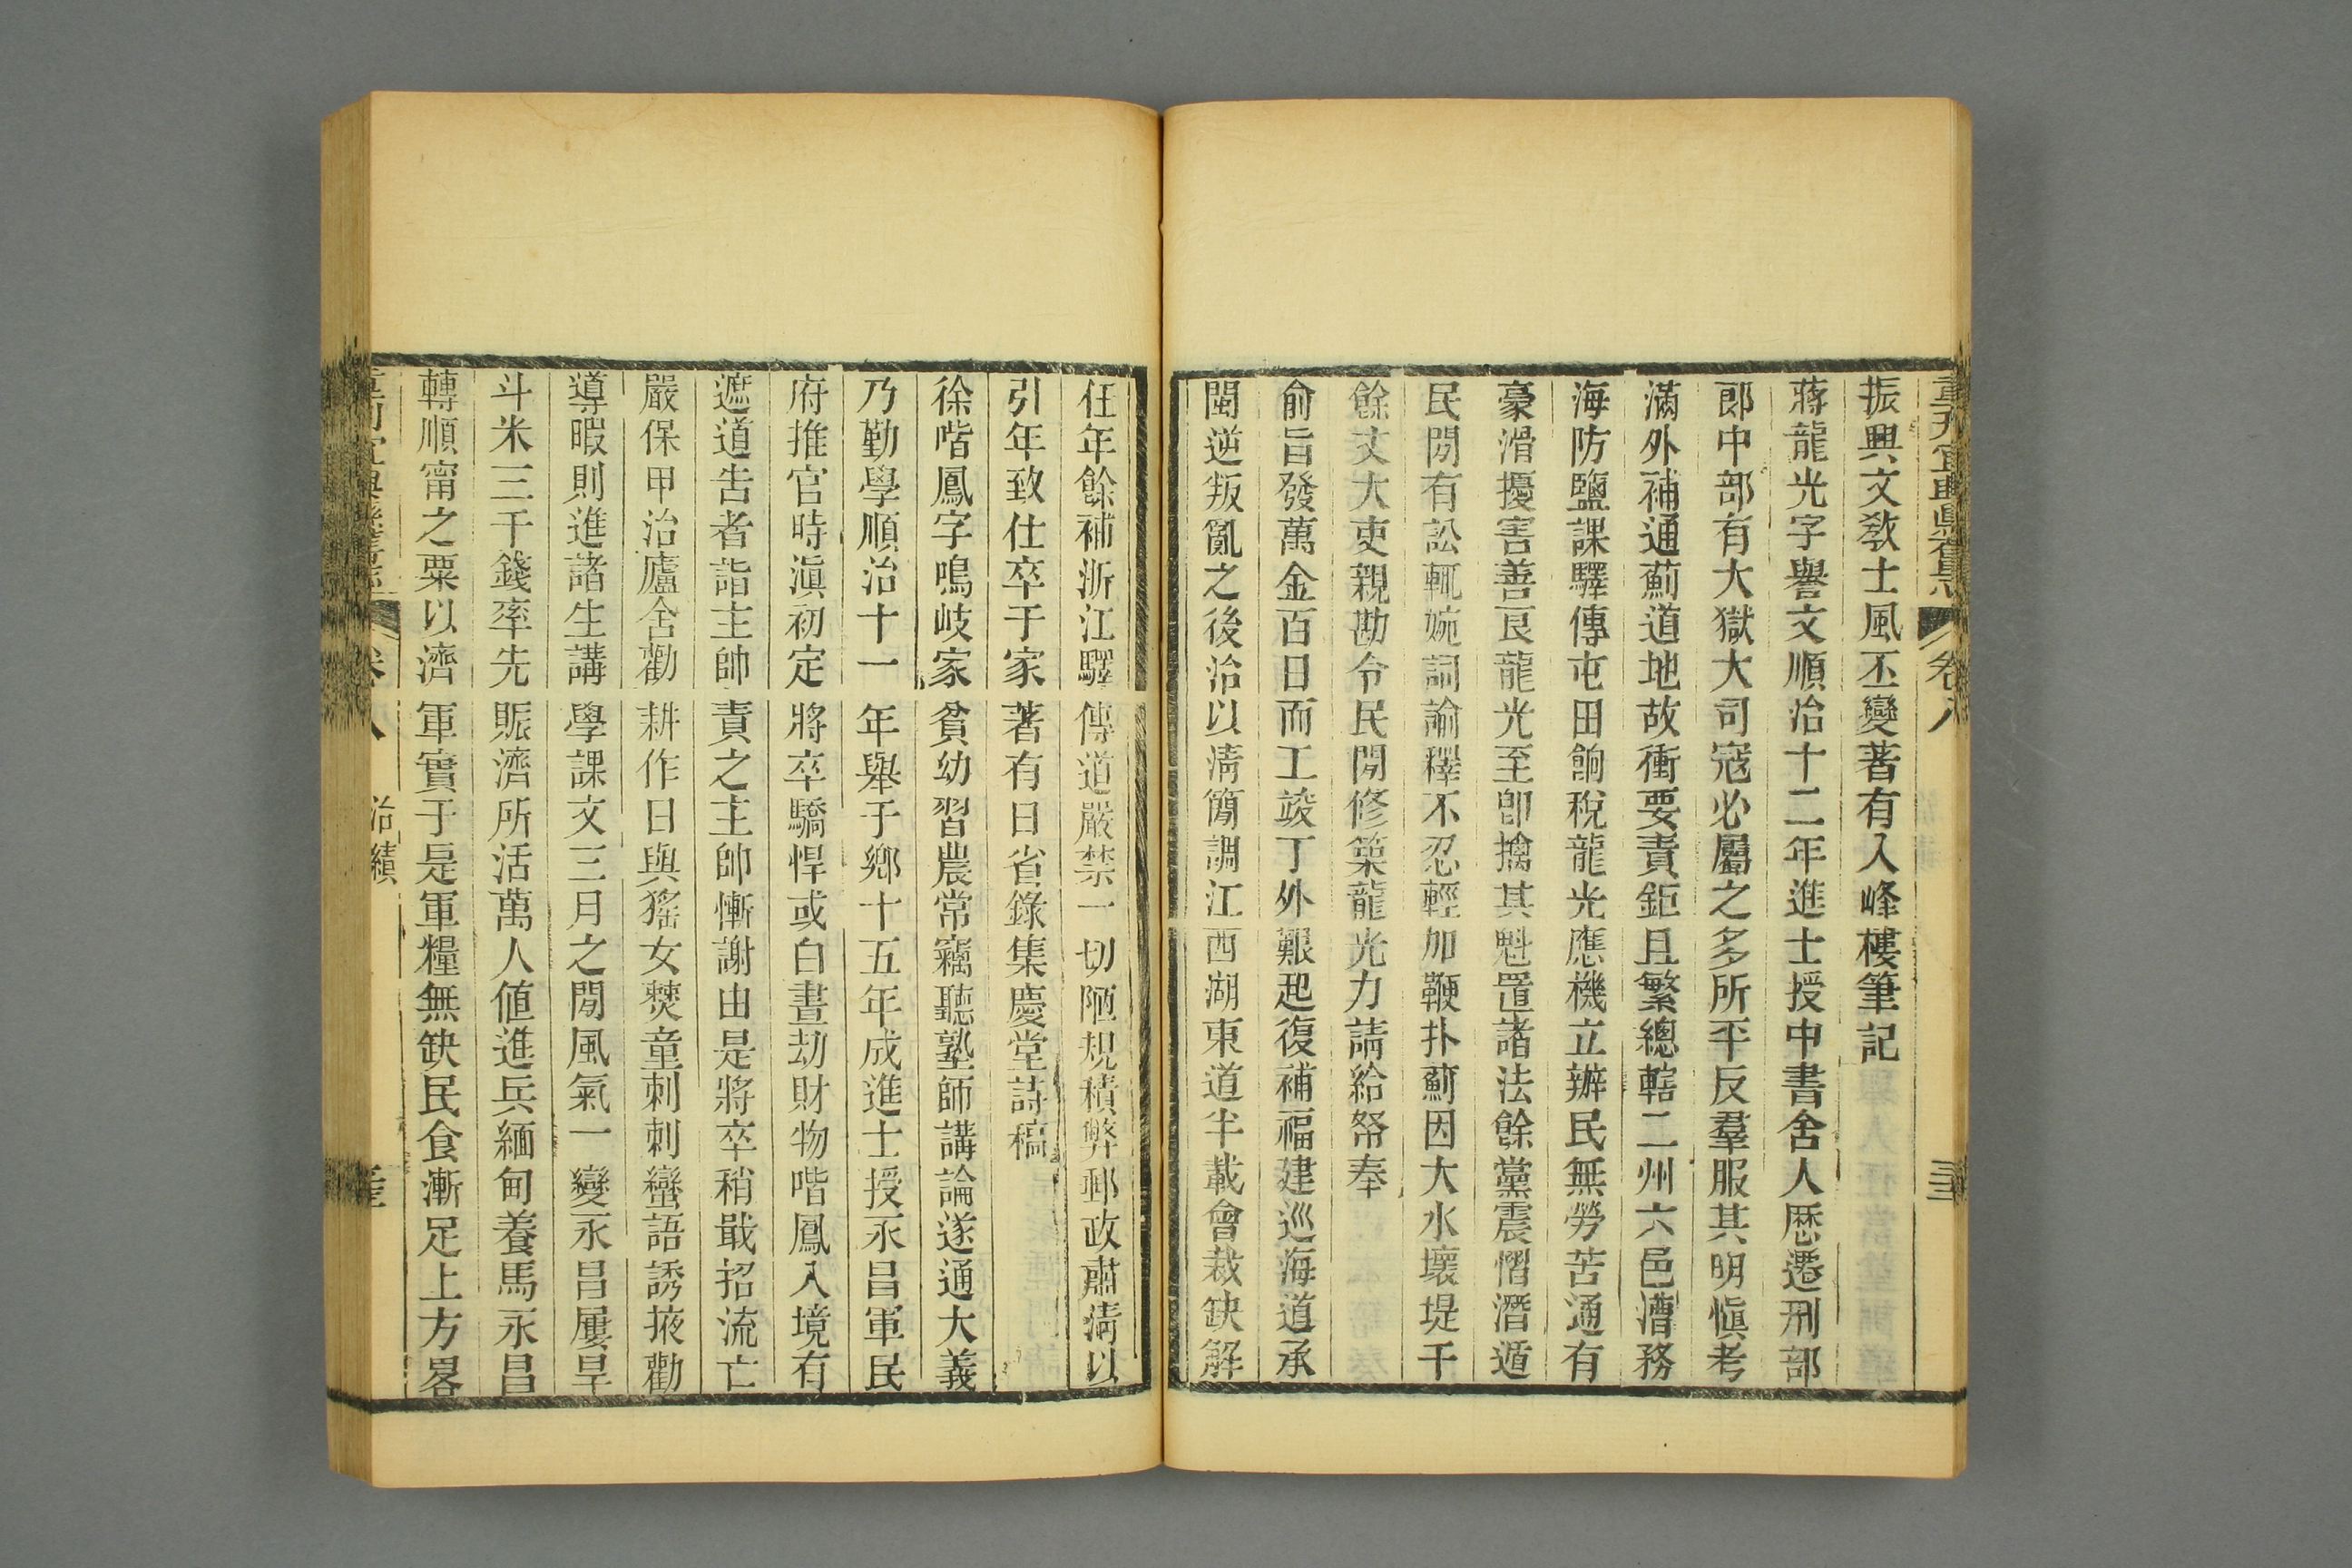 振興文敎士風丕變著有入峰樓筆記
蔣龍光字譽文順治十二年進士授中書舍人歷遷刑部
郎中部有大獄大司寇必屬之多所平反羣服其明愼考
滿外補通薊道地故衝要責鉅且繁總轄二州六邑漕務
海防鹽課驛傳屯田餉稅龍光應機立辦民無勞苦通有
豪滑擾害善良龍光至卽擒其魁置諸法餘黨震慴潛遁
民間有訟輒婉詞諭釋不忍輕加鞭扑薊因大水壞堤千
餘丈大吏親勘令民間修築龍光力請給帑奉
俞旨發萬金百日而工竣丁外艱起復補福建巡海道承
閩逆叛亂之後治以淸簡調江西湖東道半載會裁缺解
任年餘補浙江驛傳道嚴禁一切陋規積弊郵政肅淸以
引年致仕卒于家著有日省錄集慶堂詩稿
徐喈鳳字鳴岐家貧幼習農常竊聽塾師講論遂通大義
乃勤學順治十一年舉于鄉十五年成進士授永昌軍民
府推官時滇初定將卒驕悍或白晝刧財物喈鳳入境有
遮道告者詣主帥責之主帥慚謝由是將卒稍戢招流亡
嚴保甲治廬舍勸耕作日與猺女僰童刺刺蠻語誘掖勸
導暇則進諸生講學課文三月之間風氣一變永昌屢旱
斗米三千錢率先賑濟所活萬人値進兵緬甸養馬永昌
轉順甯之粟以濟軍實于是軍糧無缺民食漸足上方畧
卷八 治績